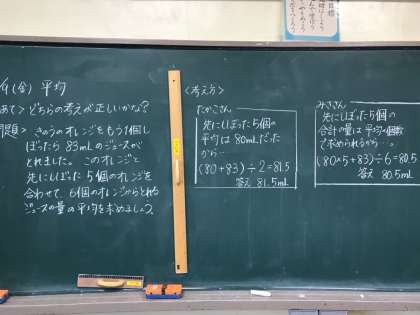 (金) 平均
あて＞どちらの考えが正しいかな?
問題＞ きのうのオレンジをもう1個し
ぼったら 83mLのジュースが
とれました。このオレンジと
先にしぼった5個のオレンジを
合わせて、6個のオレンジからとれる
ジュースの量の平均を求めましょう。
＜考え方＞
たかこさん
先にしぼった5個の
平均は80mLだった
から…
(80+83)÷2=81.5
答え 81.5mL
みささん
先にしぼった5個の
合計の量は平均×個数
で求められるから…。
(80×5+83)÷6=80.5
答え 80.5mL